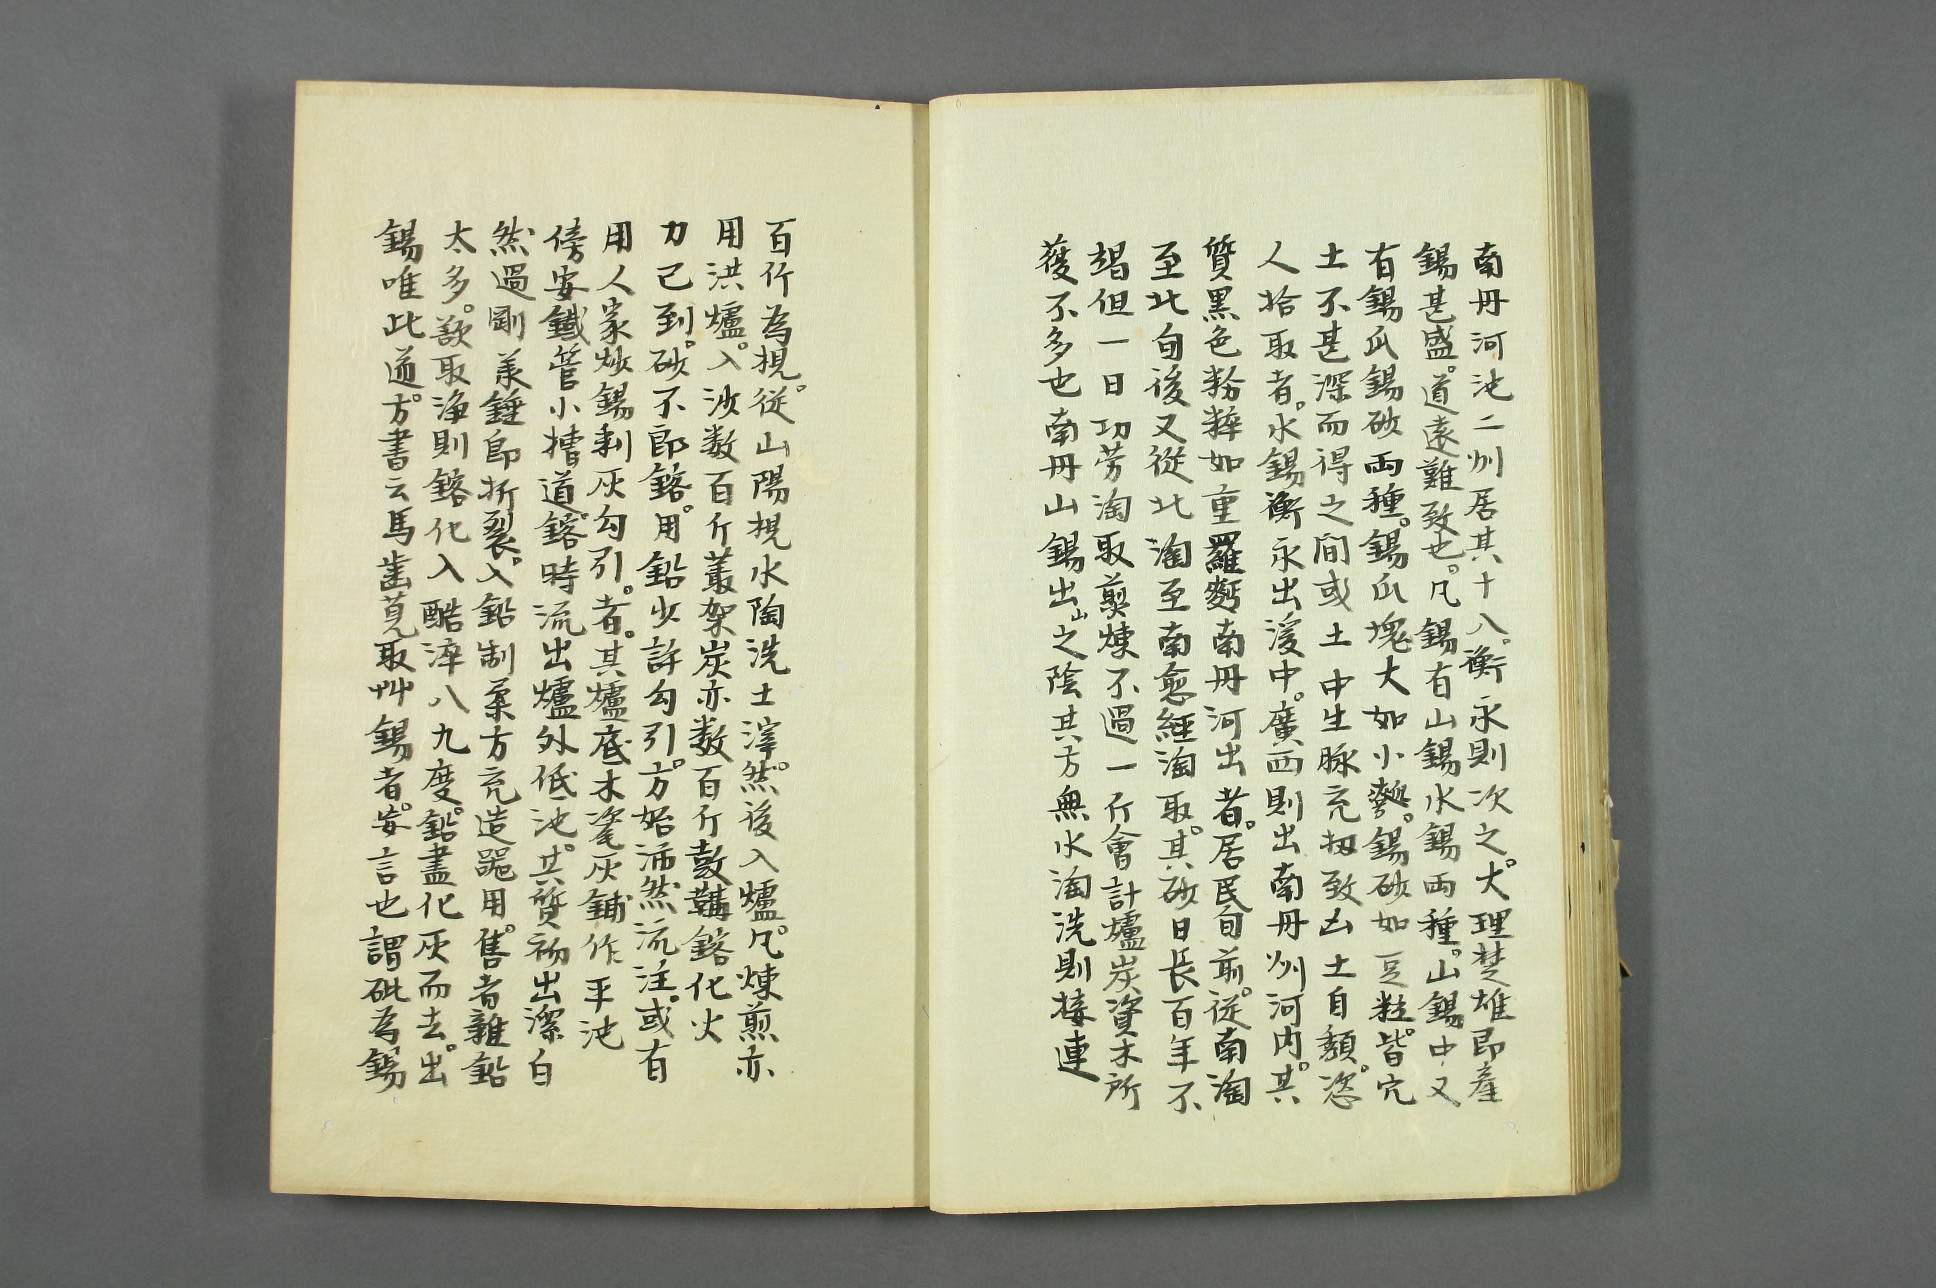 南丹河池二州居其十八。衡永則次之。大理楚雄即產
錫甚盛。道遠難致也。凡錫有山錫水錫両種。山錫中又
有錫瓜錫砂両種。錫瓜塊大如小瓠。錫砂如豆粒。皆穴
土不甚深而得之間或土中生脉充牣致凶土自頹。恣
人拾取者。水錫衡永出溪中。廣西則出南丹州河内。其
質黒色粉粹如重羅麪南丹河出者。居民旬前。従南淘
至北旬後又從北淘至南愈經淘取。其砂日長百年不
竭但一日功劳淘取煎煉不過一斤會計爐炭資本所
獲不多也南丹山錫出山之陰其方無水淘洗則接連
百斤為梘。從山陽梘水陶洗土滓。然後入爐。凡煉煎亦
用洪爐。入沙数百斤叢架炭亦数百斤鼓鞲鎔化火
力已到。砂不即鎔。用鉛少許勾引。方始沛然流注。或有
用人家炒錫剩灰勾引。者。其爐底木瓷灰鋪作平池
傍安鐵管小槽道。鎔時流出爐外低池。其質初出潔白
然過剛羕錘即折裂。入鉛制柔方充造噐用。售者雜鉛
太多。欲取浄則鎔化入醋淬八九度。鉛盡化灰而去。出
錫唯此道。方。書云馬歯莧取艸錫者。妄言也謂砒為錫